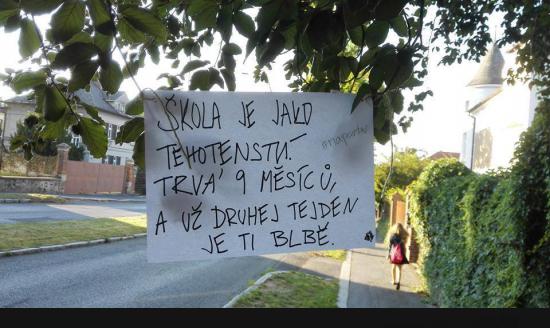 ŠKOLA JE JAKO
TĚHOTENSTVÍ.
TRVÁ 9 MĚSÍCŮ,
A UŽ DRUHEJ TEJDEN
JE TI BLBĚ.